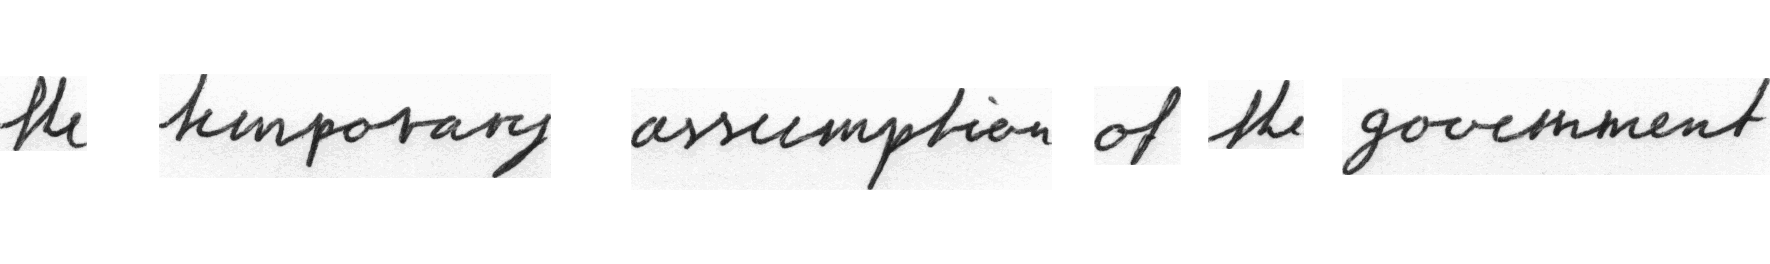 the temporary assumption of the government